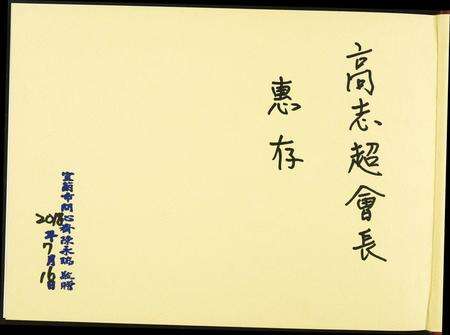 高志超會長
惠存
宜蘭市問心齋陳永 敬贈
2018年7月16日